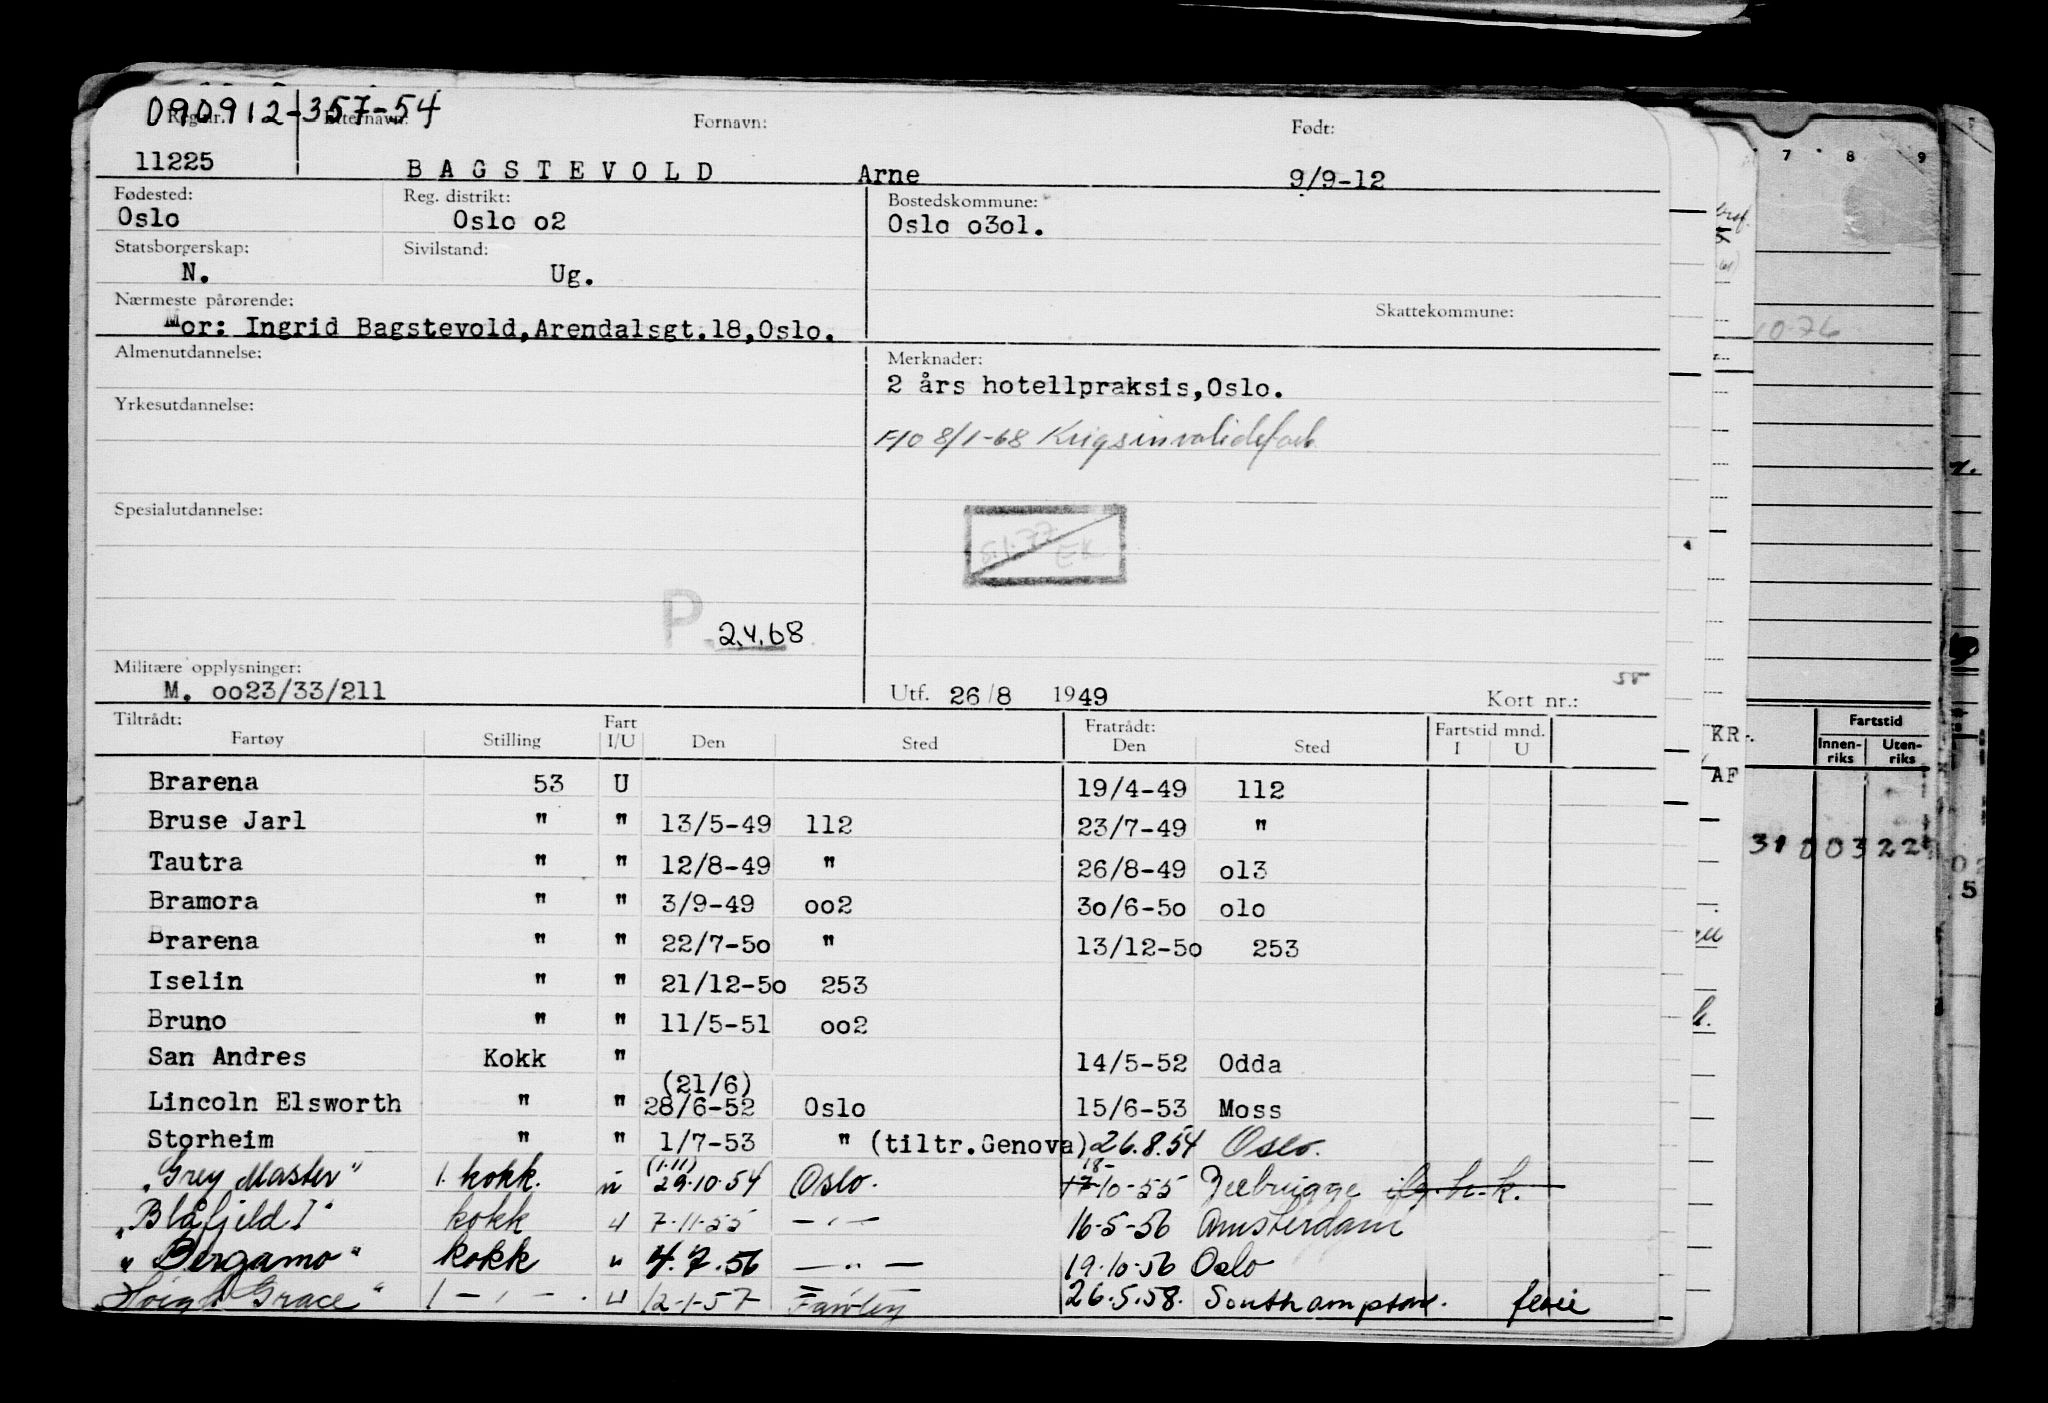 090912-357-54
Reg.nr. Etternavn: Fornavn: Født:
11225 BAGSTEVOLD Arne 9/9-12
Fødested: Reg. distrikt: Bostedskommune:
Oslo Oslo o2 Oslo o3ol.
Statsborgerskap: Sivilstand:
N. Ug.
Nærmeste pårørende: Skattekommune:
Mor: Ingrid Bagstevold,Arendalsgt.18,Oslo.
Almenutdannelse: Merknader:
2 års hotellpraksis,Oslo.
Yrkesutdannelse:
8/1-68 Krigsinvalideforb
Spesialutdannelse:
EK
P. 2.4.68
Militære opplysninger:
M. oo23/33/211 Utf. 26/8 1949 Kort nr.:
Tiltrådt: Fart Fratrådt: Fartstid mnd.
Fartøy Stilling I/U Den Sted Den Sted I U
Brarena 53 U 19/4-49 112
Bruse Jarl " " 13/5-49 112 23/7-49 "
Tautra " " 12/8-49 " 26/8-49 ol3
Bramora " " 3/9-49 oo2 3o/6-5o olo
Brarena " " 22/7-5o " 13/12-5o 253
Iselin " " 21/12-5o 253
Bruno " " 11/5-51 oo2
San Andres Kokk " 14/5-52 Odda
(21/6)
Lincoln Elsworth " " 28/6-52 Oslo 15/6-53 Moss
Storheim " " 1/7-53 " (tiltr.Genova) 26.8.54 Oslo.
(1.11) 18-
"Grey Master" 1. kokk. u 29.10.54 Oslo. 17-10-55 Zeebrugge
"Blåfjeld I" kokk u 7.11.55 —"— 16-5-56 Amsterdam
"Bergamo" kokk " 4.7.56 —"— 19.10.56 Oslo
"Høegh Grace" 1 —"— u 12-1-57 Fawley 26.5.58. Southampton. ferie
7 8 9
10-76
KR.
AF
Fartstid
Innen-riks Uten-riks
31 0 03 22
5